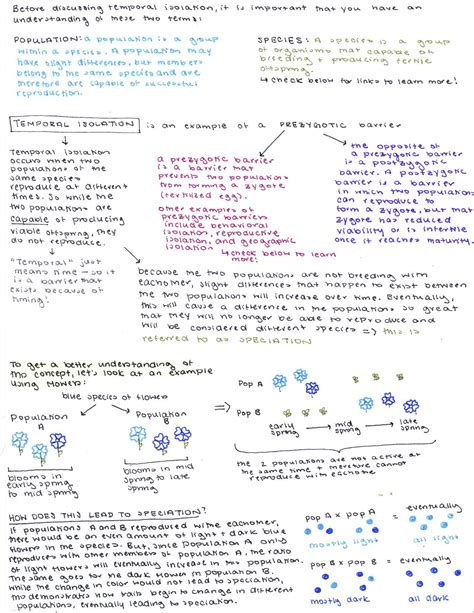 Before discussing temporal isolation, it is important that you have an
understanding of these two terms:
POPULATION: a population is a group
within a species. A population may
have slight differences, but members
belong to the same species and are
therefore are capable of successful
reproduction.
SPECIES: A species is a group
of organisms that capable of
breeding + producing fertile
offspring.
↳ check below for links to learn more!
TEMPORAL ISOLATION is an example of a PREZYGOTIC barrier
Temporal isolation
occurs when two
populations of the
same species
reproduce at different
times. So while the
two populations are
capable of producing
viable offspring, they
do not reproduce.
"Temporal" just
means time — so it
is a barrier that
exists because of
timing!
a prezygotic barrier
is a barrier that
prevents two populations
from forming a zygote
(fertilized egg).
other examples of
prezygotic barriers
include behavioral
isolation, reproductive
isolation, and geographic
isolation
↳ check below to learn
more!
the opposite of
a prezygotic barrier
is a postzygotic
barrier. A postzygotic
barrier is a barrier
in which two populations
can reproduce to
form a zygote, but that
zygote has reduced
viability or is infertile
once it reaches maturity.
because the two populations are not breeding with
eachother, slight differences that happen to exist between
the two populations will increase over time. Eventually,
this will cause a difference in the populations so great
that they will no longer be able to reproduce and
will be considered different species => this is
referred to as SPECIATION
To get a better understanding of
this concept, let's look at an example
using flowers:
blue species of flower
Population
A
Population
B
blooms in early
to mid spring
blooms in mid
to late spring
=>
Pop A
Pop B
early
spring → mid
spring → late
spring
the 2 populations are not active at
the same time + therefore cannot
reproduce with eachother
HOW DOES THIS LEAD TO SPECIATION?
If populations A and B reproduced with eachother,
there would be an even amount of light + dark blue
flowers in the species. But, since population A only
reproduces with other members of population A, the ratio
of light flowers will eventually increase in this population.
The same goes for the darker flowers in population B.
While the change in color would not lead to speciation,
this demonstrates how traits begin to change in different
populations, eventually leading to speciation.
pop A x pop A = eventually
mostly light all light
pop B x pop B = eventually
mostly dark all dark